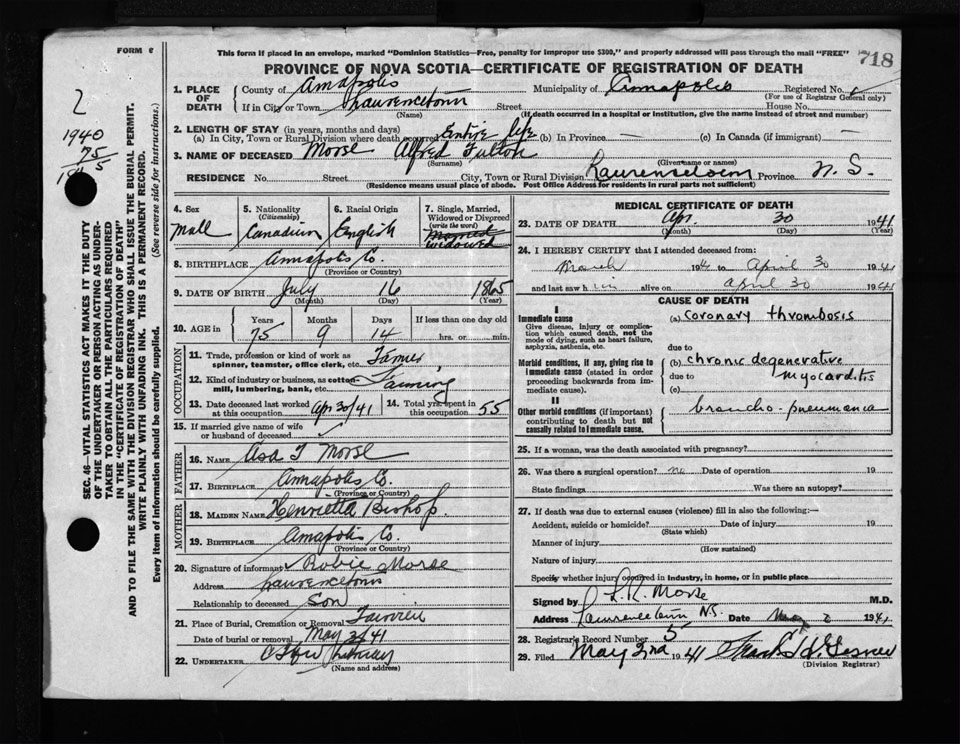 FORM
This form if placed in an envelope, marked "Dominion Statistics—Free, penalty for improper use $300," and properly addressed will pass through the mail "FREE"
718
PROVINCE OF NOVA SCOTIA—CERTIFICATE OF REGISTRATION OF DEATH
2
1940
75
SEC. 46—VITAL STATISTICS ACT MAKES IT THE DUTY
OF THE UNDERTAKER OR PERSON ACTING AS UNDER-
TAKER TO OBTAIN ALL THE PARTICULARS REQUIRED
IN THE "CERTIFICATE OF REGISTRATION OF DEATH"
AND TO FILE THE SAME WITH THE DIVISION REGISTRAR WHO SHALL ISSUE THE BURIAL PERMIT.
WRITE PLAINLY WITH UNFADING INK. THIS IS A PERMANENT RECORD.
Every item of Information should be carefully supplied. (See reverse side for instructions.)
1. PLACE OF DEATH County of Annapolis Municipality of Annapolis Registered No.
(For use of Registrar General only)
If in City or Town Laurencetown Street House No.
(Name) (If death occurred in a hospital or institution, give the name instead of street and number)
2. LENGTH OF STAY (in years, months and days)
(a) In City, Town or Rural Division where death occurred Entire life (b) In Province — (c) In Canada (if immigrant) —
3. NAME OF DECEASED Morse Alfred Fulton
(Surname) (Given name or names)
RESIDENCE No. Street City, Town or Rural Division Province N. S.
(Residence means usual place of abode. Post Office Address for residents in rural parts not sufficient)
4. Sex
Male
5. Nationality
(Citizenship)
Canadian
6. Racial Origin
English
7. Single, Married, Widowed or Divorced
(write the word)
Married
widowed
8. BIRTHPLACE Annapolis Co.
(Province or Country)
9. DATE OF BIRTH July 16 1865
(Month) (Day) (Year)
10. AGE in Years Months Days If less than one day old
75 9 14 hrs. or min.
OCCUPATION
11. Trade, profession or kind of work as
spinner, teamster, office clerk, etc. Farmer
12. Kind of industry or business, as cotton
mill, lumbering, bank, etc. Farming
13. Date deceased last worked
at this occupation Apr 30/41
14. Total yrs. spent in
this occupation 55
15. If married give name of wife
or husband of deceased
FATHER
16. NAME Asa T Morse
17. BIRTHPLACE Annapolis Co.
(Province or Country)
MOTHER
18. MAIDEN NAME Henrietta Bishop.
19. BIRTHPLACE Annapolis Co.
(Province or Country)
20. Signature of informant Robie Morse
Address Laurencetown
Relationship to deceased Son
21. Place of Burial, Cremation or Removal
Date of burial or removal May 3/41
22. UNDERTAKER
(Name and address)
MEDICAL CERTIFICATE OF DEATH
23. DATE OF DEATH Apr. 30 1941
(Month) (Day) (Year)
24. I HEREBY CERTIFY that I attended deceased from:
March 19 to April 30 1941
and last saw him alive on April 30 1941
CAUSE OF DEATH
I
Immediate cause
Give disease, injury or complica-
tion which caused death, not the
mode of dying, such as heart failure,
asphyxia, asthenia, etc.
(a) coronary thrombosis
due to
Morbid conditions, if any, giving rise to
immediate cause (stated in order
proceeding backwards from im-
mediate cause).
(b) chronic degenerative
due to myocarditis
(c)
II
Other morbid conditions (if important)
contributing to death but not
causally related to immediate cause.
broncho-pneumonia
25. If a woman, was the death associated with pregnancy?
26. Was there a surgical operation? no Date of operation 19
State findings Was there an autopsy?
27. If death was due to external causes (violence) fill in also the following:—
Accident, suicide or homicide? Date of injury 19
(State which)
Manner of injury
(How sustained)
Nature of injury
Specify whether injury occurred in industry, in home, or in public place
Signed by L.R. Morse M.D.
Address Laurencetown N.S. Date 2 1941
28. Registrar's Record Number 5
29. Filed May 2nd 1941
(Division Registrar)